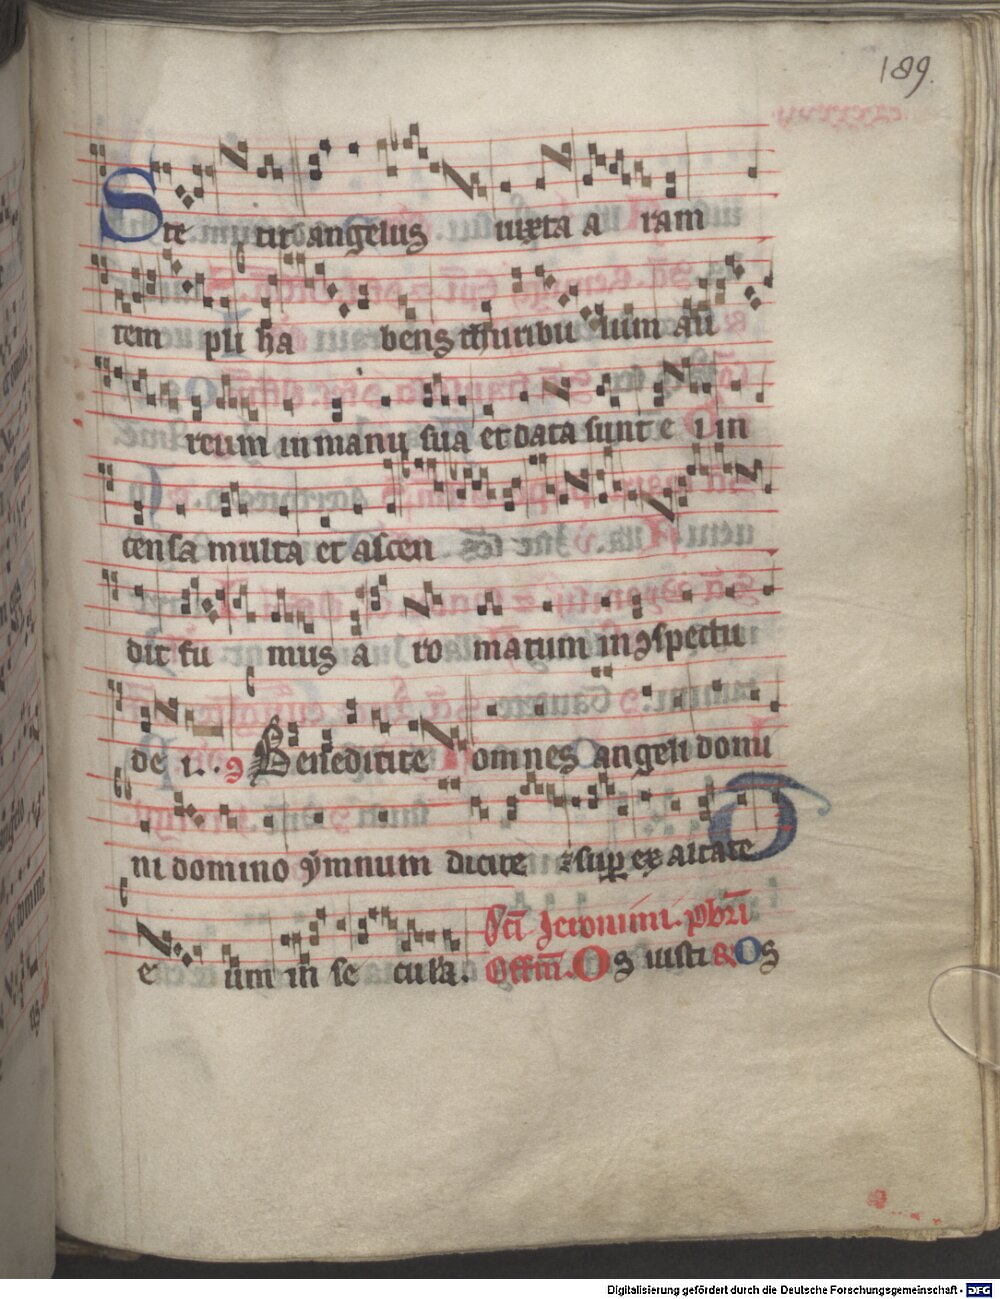 189.
Ste tit angelus iuxta a ram
tem pli ha bens thuribu lum au
reum in manu sua et data sunt e i in
censa multa et ascen
dit fu mus a ro matum in ꝯspectu
de i. ꝯ Benedicite omnes angeli domi
ni domino ymnum dicite ⁊ suꝑ ex altate
e um in se cula.
Sc̄i Jeronimi. pb̄ri
Offm̄. Os iusti & Os
Digitalisierung gefördert durch die Deutsche Forschungsgemeinschaft - DFG